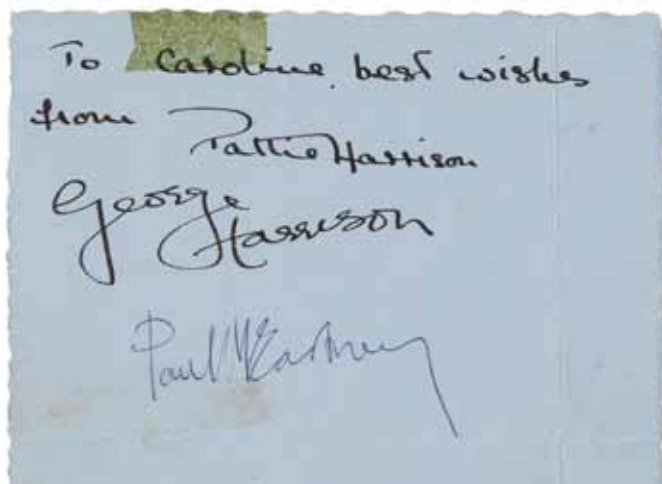 To Caroline, best wishes
from Pattie Harrison
George
Harrison
Paul McCartney